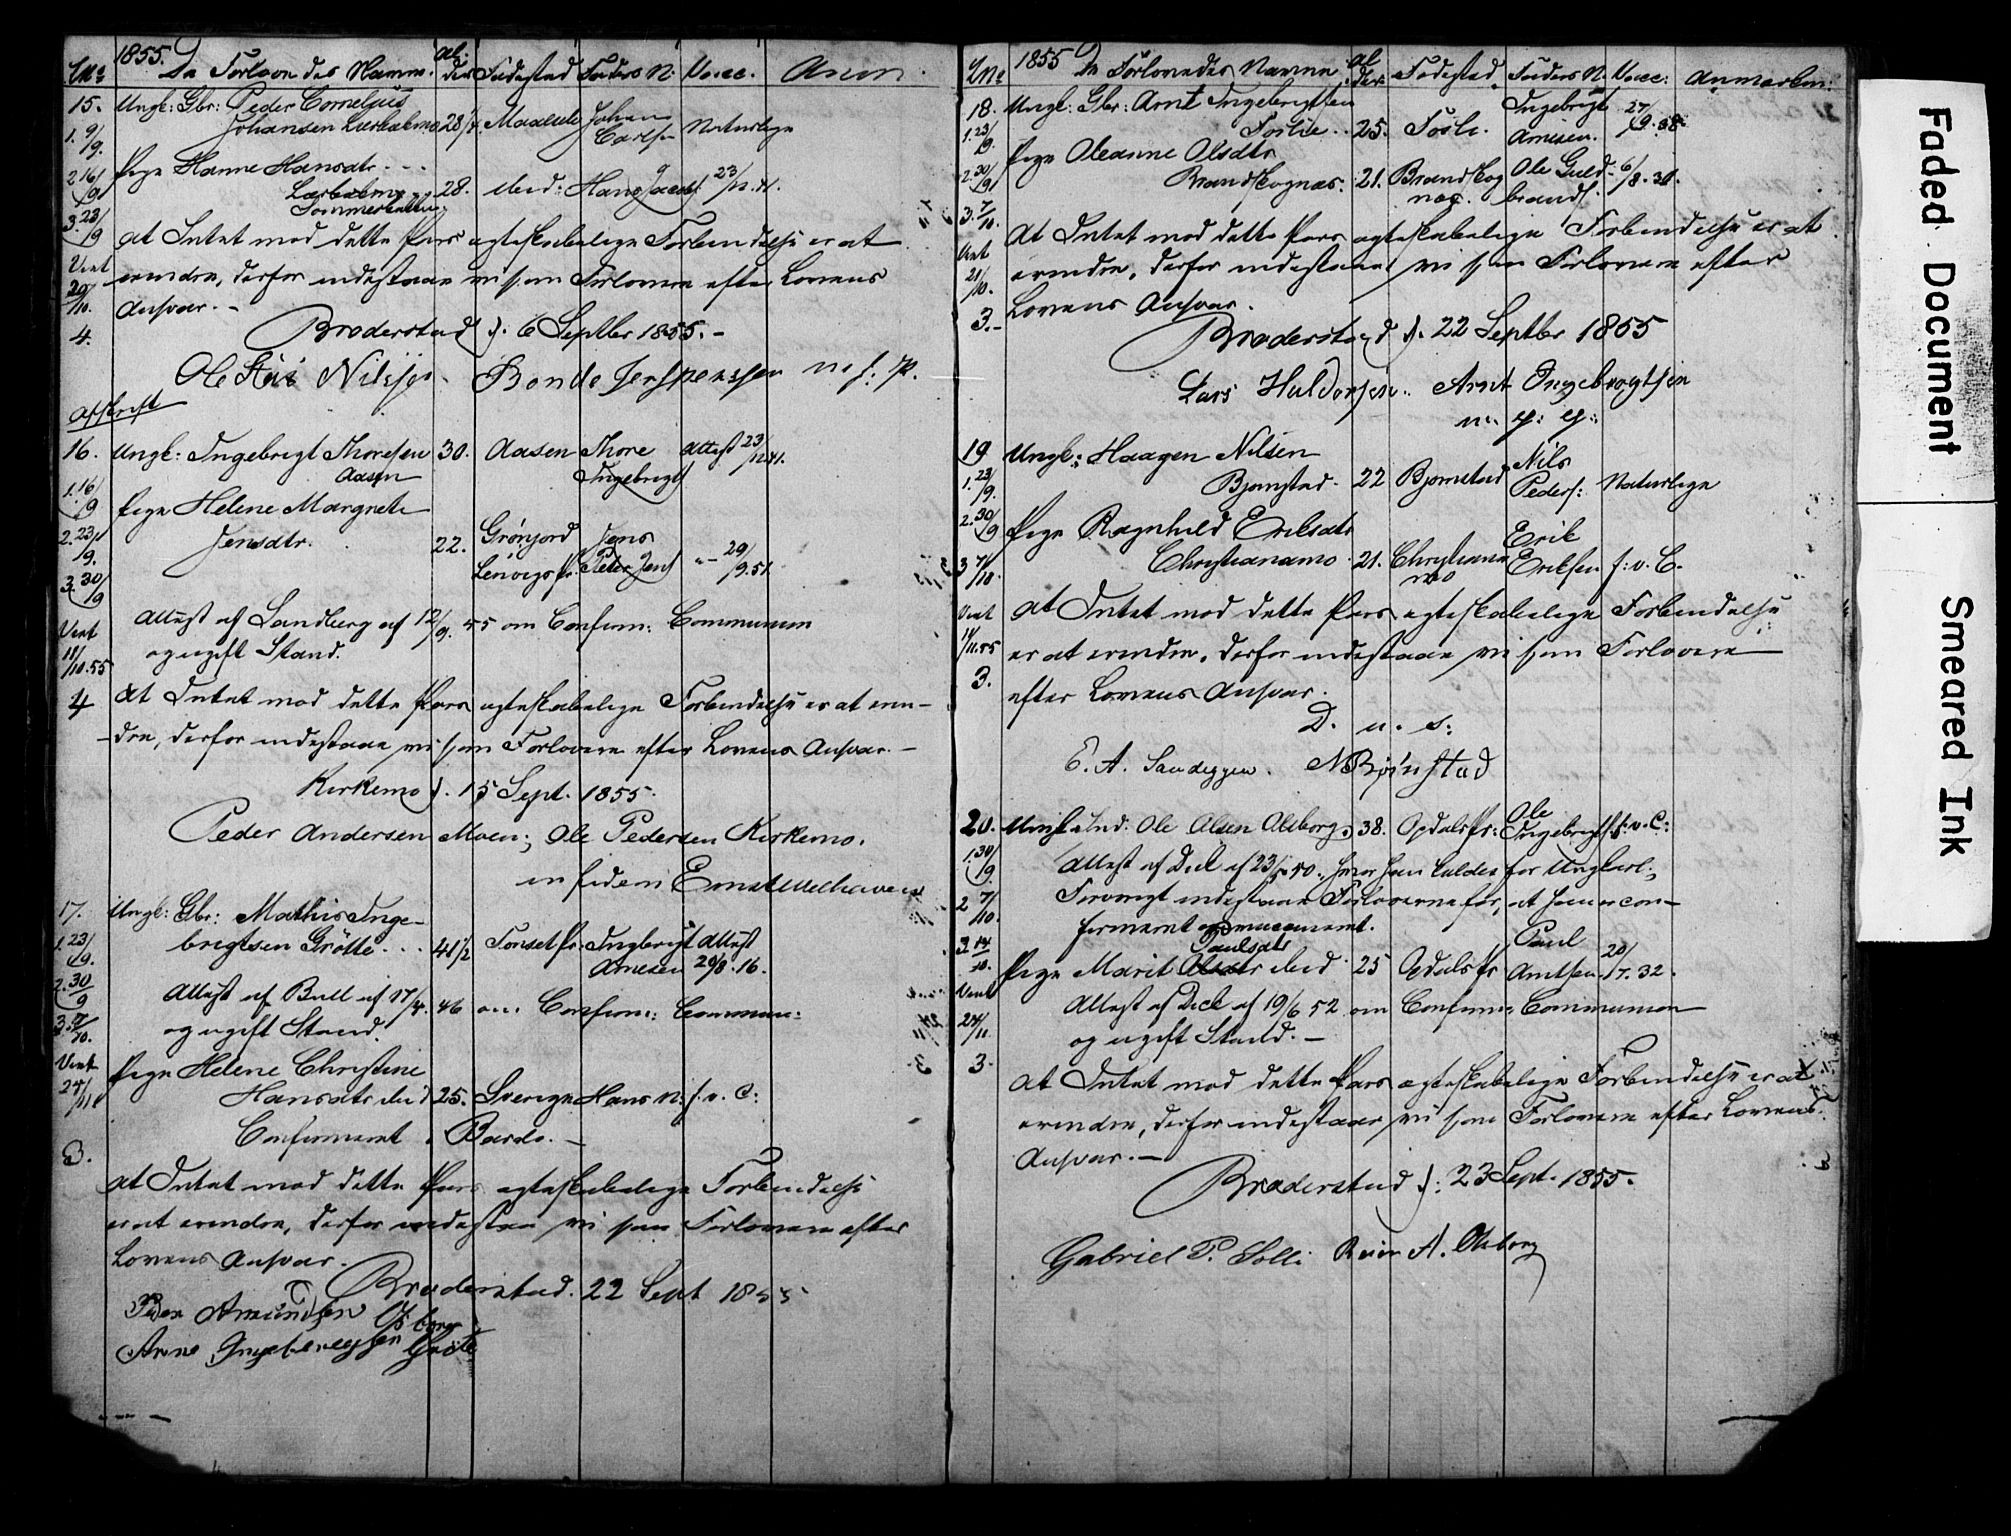 1855.
No De Forlovedes Navne. Alder Fødested Faders N. Vacc. Anm.
15. Ungk: Gbr: Peder Cornelius
Johansen 28 Johan Carlsen Naturlige
1. 9/9.
2. 16/9
3. 23/9
Pige Hanne Hansdtr.
28. ibid: Hans Jacobs 23/12.41.
At Intet mod dette Pars egteskabelige Forbindelse er at
erindre, derfor indestaae vi som Forlovere efter Lovens
Ansvar. -
Viet 20/10.
4.
Broderstad d. 6 Septber 1855. -
Ole Nilssen. Bonde Jespersen m. f. P.
Afskrift
16. Ungk: Ingebrigt Thoresen 30. Aasen Thore Attest 23/12 41.
Aasen Ingebrigts
1. 16/9
2. 23/9.
3. 30/9
Pige Helene Margrete
Jensdtr. 22. Grønjord Jens
Lenvigs Pr. Peter Jens "- 29/9.51
Attest af Sandberg af 12/9. 55 om Confirm: Communion
og ugift Stand.
Viet 11/10.55
4
At Intet mod dette Pars egteskabelige Forbindelse er at erin-
-dre, derfor indestaae vi som Forlovere efter Lovens Ansvar. -
Kirkemo d. 15 Sept. 1855.
Peder Andersen Moen; Ole Pedersen Kirkemo.
in fidem
17. Ungk: Gbr: Mathis Inge-
brigtsen Grøtte. 41 1/2 Tønset Pr. Ingbrigt Attest
Arnesen 29/8.16.
1. 23/9.
2. 30/9
3. 7/10.
Attest af Bull af 17/4. 46 om Confirm: Commun:
og ugift Stand.
Viet 24/11
Pige Helene Christine
Hansdtr ibid 25. Sverige Hans N. f. v. C:
Confirmeret i Bardo. -
3.
At Intet mod dette Pars egteskabelige Forbindelse
er at erindre, derfor indestaa vi som Forlovere efter
Lovens Ansvar.
Broderstad. 22 Sept 1855
Peder Amundsen
Arne Ingebrigtsen Grøtte
1855
No De Forlovedes Navne Alder Fødested Faders N. Vacc: Anmærkn:
18. Ungk: Gbr: Arnt Ingebrigtsen
Fosli. 25. Fosli. Ingebrigt Arnesen. 27/9.38.
1. 23/9.
2. 30/9
3. 7/10.
Pige Oleanne Olsdtr
Brandskognæs. 21. Brandskog næs. Ole Guldbrands. 6/8.38.
At Intet mod dette Pars egteskabelige Forbindelse er at
erindre, derfor indestaae vi som Forlovere efter
Lovens Ansvar.
Viet 21/10.
3. -
Broderstad d. 22 Septbr 1855
Lars Haldorsen. Arnt Ingebrigtsen
m. p: p:
19 Ungk: Haagen Nilsen
Bjørnstad. 22 Bjørnstad Nils Peders: Naturlige
1. 23/9.
2. 30/9
3 7/10.
Pige Ragnhild Eriksdtr
Christianamo. 21. Christianamo Erik Eriksen f: v. C.
Viet 11/11.55
3.
At Intet mod dette Pars egteskabelige Forbindelse
er at erindre, derfor indestaae vi som Forlovere
efter Lovens Ansvar.
D. u. s:
E. A. Sandeggen. N Bjørnstad
20. Ungk. Ind: Ole Olsen Alsborg. 38. Opdals Pr: Ole Ingebrigts f: v. C:
1. 30/9.
2 7/10.
3. 14/10.
Attest af af 23/ 50, hvor han kaldes for Ungkarl;
Forøvrigt indestaae Forloverne for, at han er con-
firmeret
Pige Marit Paulsdtr ibid 25 Opdals Pr Paul Arntsen 20/7. 32.
Attest af af 19/6 52 om Confirm: Communion
og ugift Stand. -
Viet 24/11
3.
At Intet mod dette Pars egteskabelige Forbindelse er at
erindre, derfor indestaae vi som Forlovere efter Lovens
Ansvar. -
Broderstad d: 23 Sept. 1855.
Gabriel P. Solli A. Alsborg
Faded Document
Smeared Ink